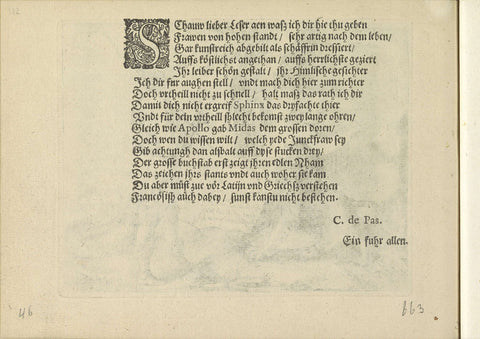 12
Schauw lieber Leser aen wasz ich dir hie thu geben
Frawen von hohen standt / sehr artig nach dem leben /
Gar kunstreich abgebilt als schäffrin dressiert /
Auffs köstlichst angethan / auffs herrlichste geziert
Ihr leiber schön gestalt / ihr Himlische gesichter
Ich dir fur aughen stell / vndt mach dich hier zum richter
Doch vrtheill nicht zu schnell / halt masz das rath ich dir
Damit dich nicht ergreif Sphinx das dryfachte thier
Vndt für dein vrtheill schlecht bekomst zwey lange ohren /
Gleich wie Apollo gab Midas dem grossen doren /
Doch wen du wissen will / welch yede Junckfraw sey
Gib achtungh dan alsbalt auff dyse stucken drey /
Der grosse buchstab erst zeigt ihren edlen Nham
Das zeichen ihrs stants vndt auch woher sie kam
Du aber müst zue vör Latijn vnd Griechsz verstehen
Francösisch auch dabey / sunst kanstu nicht bestehen.
C. de Pas.
Ein fuhr allen.
46
663